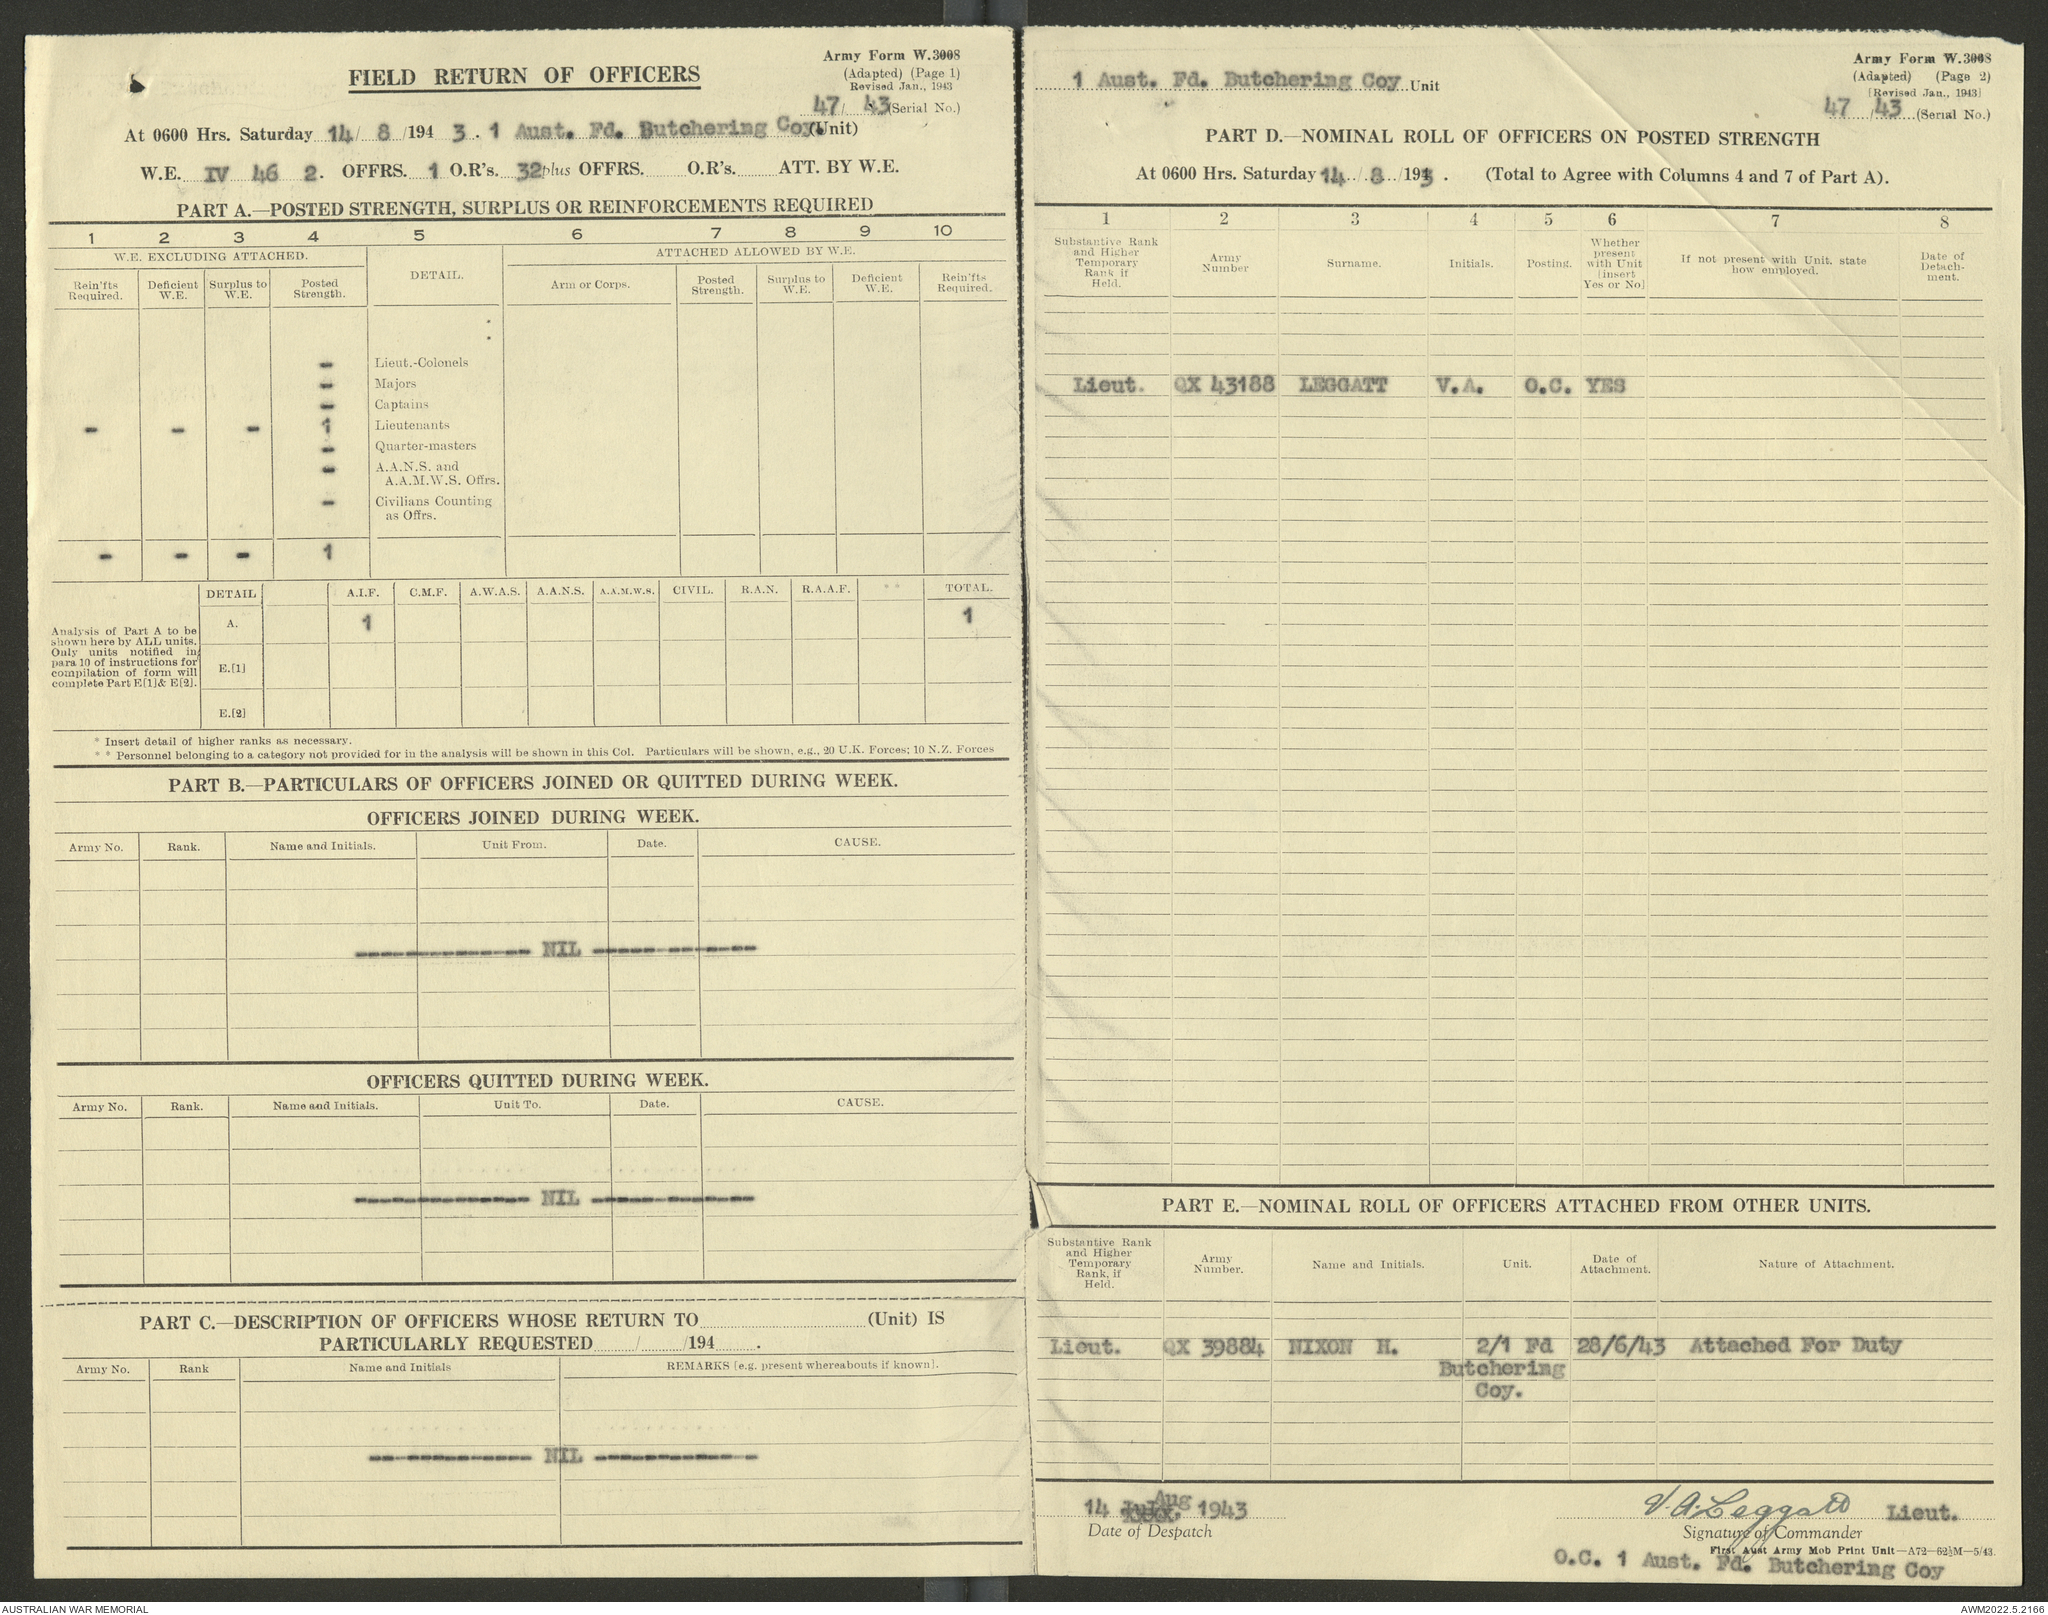 Army Form W.3008
(Adapted) (Page 1)
Revised Jan., 1943
FIELD RETURN OF OFFICERS
47/ 43 (Serial No.)
At 0600 Hrs. Saturday 14/ 8 /194 3. 1 Aust. Fd. Butchering Coy. (Unit)
W.E. IV 46 2. OFFRS. 1 O.R's. 32 plus OFFRS. O.R's. ATT. BY W.E.
PART A.—POSTED STRENGTH, SURPLUS OR REINFORCEMENTS REQUIRED
1 2 3 4 5 6 7 8 9 10
W.E. EXCLUDING ATTACHED. DETAIL. ATTACHED ALLOWED BY W.E.
Rein'fts Required. Deficient W.E. Surplus to W.E. Posted Strength. Arm or Corps. Posted Strength. Surplus to W.E. Deficient W.E. Rein'fts Required.
- Lieut.-Colonels
- Majors
- Captains
- - - 1 Lieutenants
- Quarter-masters
- A.A.N.S. and
A.A.M.W.S. Offrs.
- Civilians Counting
as Offrs.
- - - 1
DETAIL A.I.F. C.M.F. A.W.A.S. A.A.N.S. A.A.M.W.S. CIVIL. R.A.N. R.A.A.F. * * TOTAL.
A. 1 1
Analysis of Part A to be
shown here by ALL units.
Only units notified in
para 10 of instructions for
compilation of form will
complete Part E[1] & E[2].
E.[1]
E.[2]
* Insert detail of higher ranks as necessary.
* * Personnel belonging to a category not provided for in the analysis will be shown in this Col. Particulars will be shown, e.g., 20 U.K. Forces; 10 N.Z. Forces
PART B.—PARTICULARS OF OFFICERS JOINED OR QUITTED DURING WEEK.
OFFICERS JOINED DURING WEEK.
Army No. Rank. Name and Initials. Unit From. Date. CAUSE.
--------------- NIL ---------------
OFFICERS QUITTED DURING WEEK.
Army No. Rank. Name and Initials. Unit To. Date. CAUSE.
--------------- NIL ---------------
PART C.—DESCRIPTION OF OFFICERS WHOSE RETURN TO (Unit) IS
PARTICULARLY REQUESTED / /194 .
Army No. Rank Name and Initials REMARKS [e.g. present whereabouts if known].
--------------- NIL ---------------
Army Form W.3008
(Adapted) (Page 2)
[Revised Jan., 1943]
1 Aust. Fd. Butchering Coy Unit
47 / 43 (Serial No.)
PART D.—NOMINAL ROLL OF OFFICERS ON POSTED STRENGTH
At 0600 Hrs. Saturday 14 / 8 /1943 . (Total to Agree with Columns 4 and 7 of Part A).
1 2 3 4 5 6 7 8
Substantive Rank and Higher Temporary Rank if Held. Army Number Surname. Initials. Posting. Whether present with Unit [insert Yes or No] If not present with Unit, state how employed. Date of Detachment.
Lieut. QX 43188 LEGGATT V.A. O.C. YES
PART E.—NOMINAL ROLL OF OFFICERS ATTACHED FROM OTHER UNITS.
Substantive Rank and Higher Temporary Rank, if Held. Army Number. Name and Initials. Unit. Date of Attachment. Nature of Attachment.
Lieut. QX 39884 NIXON H. 2/1 Fd 28/6/43 Attached For Duty
Butchering
Coy.
14 Aug 1943
Date of Despatch
V.A. Leggatt Lieut.
Signature of Commander
First Aust Army Mob Print Unit—A72—62½M—5/43.
O.C. 1 Aust. Fd. Butchering Coy
AUSTRALIAN WAR MEMORIAL
AWM2022.5.2166